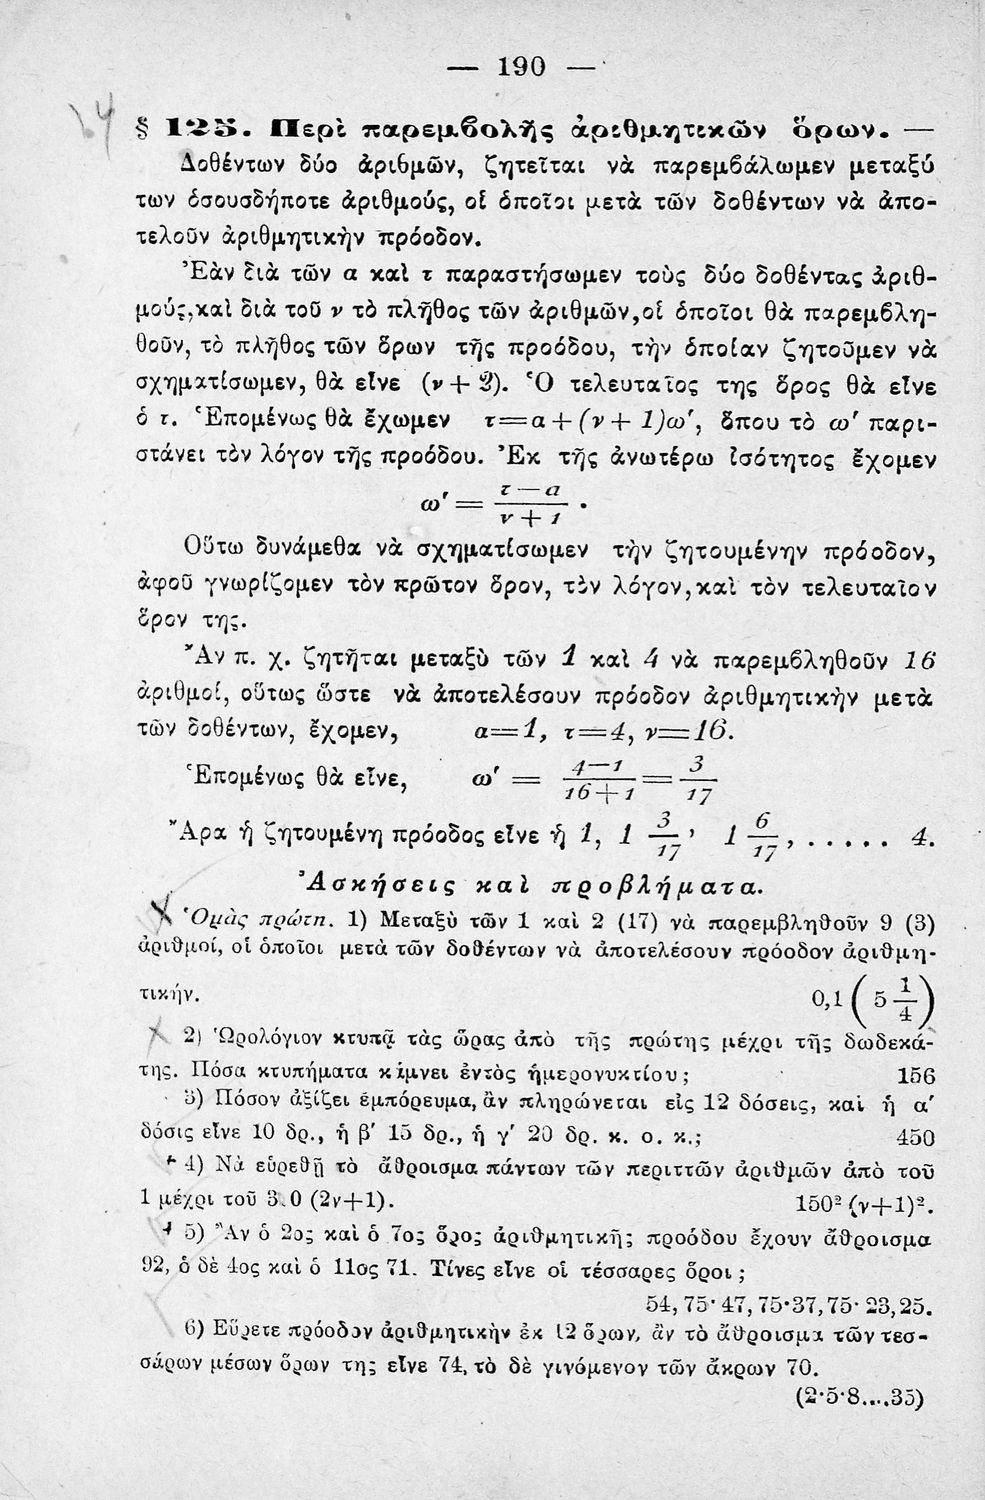 — 190 —
§ 125. Περὶ παρεμβολῆς ἀριθμητικῶν ὅρων. —
Δοθέντων δύο ἀριθμῶν, ζητεῖται νὰ παρεμβάλωμεν μεταξύ
των ὁσουσδήποτε ἀριθμούς, οἱ ὁποῖοι μετὰ τῶν δοθέντων νὰ ἀπο-
τελοῦν ἀριθμητικὴν πρόοδον.
Ἐὰν διὰ τῶν α καὶ τ παραστήσωμεν τοὺς δύο δοθέντας ἀριθ-
μούς, καὶ διὰ τοῦ ν τὸ πλῆθος τῶν ἀριθμῶν, οἱ ὁποῖοι θὰ παρεμβλη-
θοῦν, τὸ πλῆθος τῶν ὅρων τῆς προόδου, τὴν ὁποίαν ζητοῦμεν νὰ
σχηματίσωμεν, θὰ εἶνε (ν + 2). Ὁ τελευταῖος της ὅρος θὰ εἶνε
ὁ τ. Ἑπομένως θὰ ἔχωμεν τ=α+(ν + 1)ω', ὅπου τὸ ω' παρι-
στάνει τὸν λόγον τῆς προόδου. Ἐκ τῆς ἀνωτέρω ἰσότητος ἔχομεν
ω' = (τ — α)/(ν + 1) .
Οὕτω δυνάμεθα νὰ σχηματίσωμεν τὴν ζητουμένην πρόοδον,
ἀφοῦ γνωρίζομεν τὸν πρῶτον ὅρον, τὸν λόγον, καὶ τὸν τελευταῖον
ὅρον της.
Ἂν π. χ. ζητῆται μεταξὺ τῶν 1 καὶ 4 νὰ παρεμβληθοῦν 16
ἀριθμοί, οὕτως ὥστε νὰ ἀποτελέσουν πρόοδον ἀριθμητικὴν μετὰ
τῶν δοθέντων, ἔχομεν, α=1, τ=4, ν=16.
Ἑπομένως θὰ εἶνε, ω' = (4—1)/(16+1) = 3/17
Ἄρα ἡ ζητουμένη πρόοδος εἶνε ἡ 1, 1 3/17, 1 6/17, ...... 4.
Ἀσκήσεις καὶ προβλήματα.
Ὁμὰς πρώτη. 1) Μεταξὺ τῶν 1 καὶ 2 (17) νὰ παρεμβληθοῦν 9 (3)
ἀριθμοί, οἱ ὁποῖοι μετὰ τῶν δοθέντων νὰ ἀποτελέσουν πρόοδον ἀριθμη-
τικήν. 0,1 (5 1/4)
2) Ὡρολόγιον κτυπᾷ τὰς ὥρας ἀπὸ τῆς πρώτης μέχρι τῆς δωδεκά-
της. Πόσα κτυπήματα κάμνει ἐντὸς ἡμερονυκτίου; 156
3) Πόσον ἀξίζει ἐμπόρευμα, ἂν πληρώνεται εἰς 12 δόσεις, καὶ ἡ α'
δόσις εἶνε 10 δρ., ἡ β' 15 δρ., ἡ γ' 20 δρ. κ. ο. κ.; 450
4) Νὰ εὑρεθῇ τὸ ἄθροισμα πάντων τῶν περιττῶν ἀριθμῶν ἀπὸ τοῦ
1 μέχρι τοῦ (2ν+1). 150² (ν+1)².
5) Ἂν ὁ 2ος καὶ ὁ 7ος ὅρος ἀριθμητικῆς προόδου ἔχουν ἄθροισμα
92, ὁ δὲ 4ος καὶ ὁ 11ος 71. Τίνες εἶνε οἱ τέσσαρες ὅροι;
54,75· 47,75·37,75· 23,25.
6) Εὕρετε πρόοδον ἀριθμητικὴν ἐκ 12 ὅρων, ἂν τὸ ἄθροισμα τῶν τεσ-
σάρων μέσων ὅρων της εἶνε 74, τὸ δὲ γινόμενον τῶν ἄκρων 70.
(2·5·8....35)